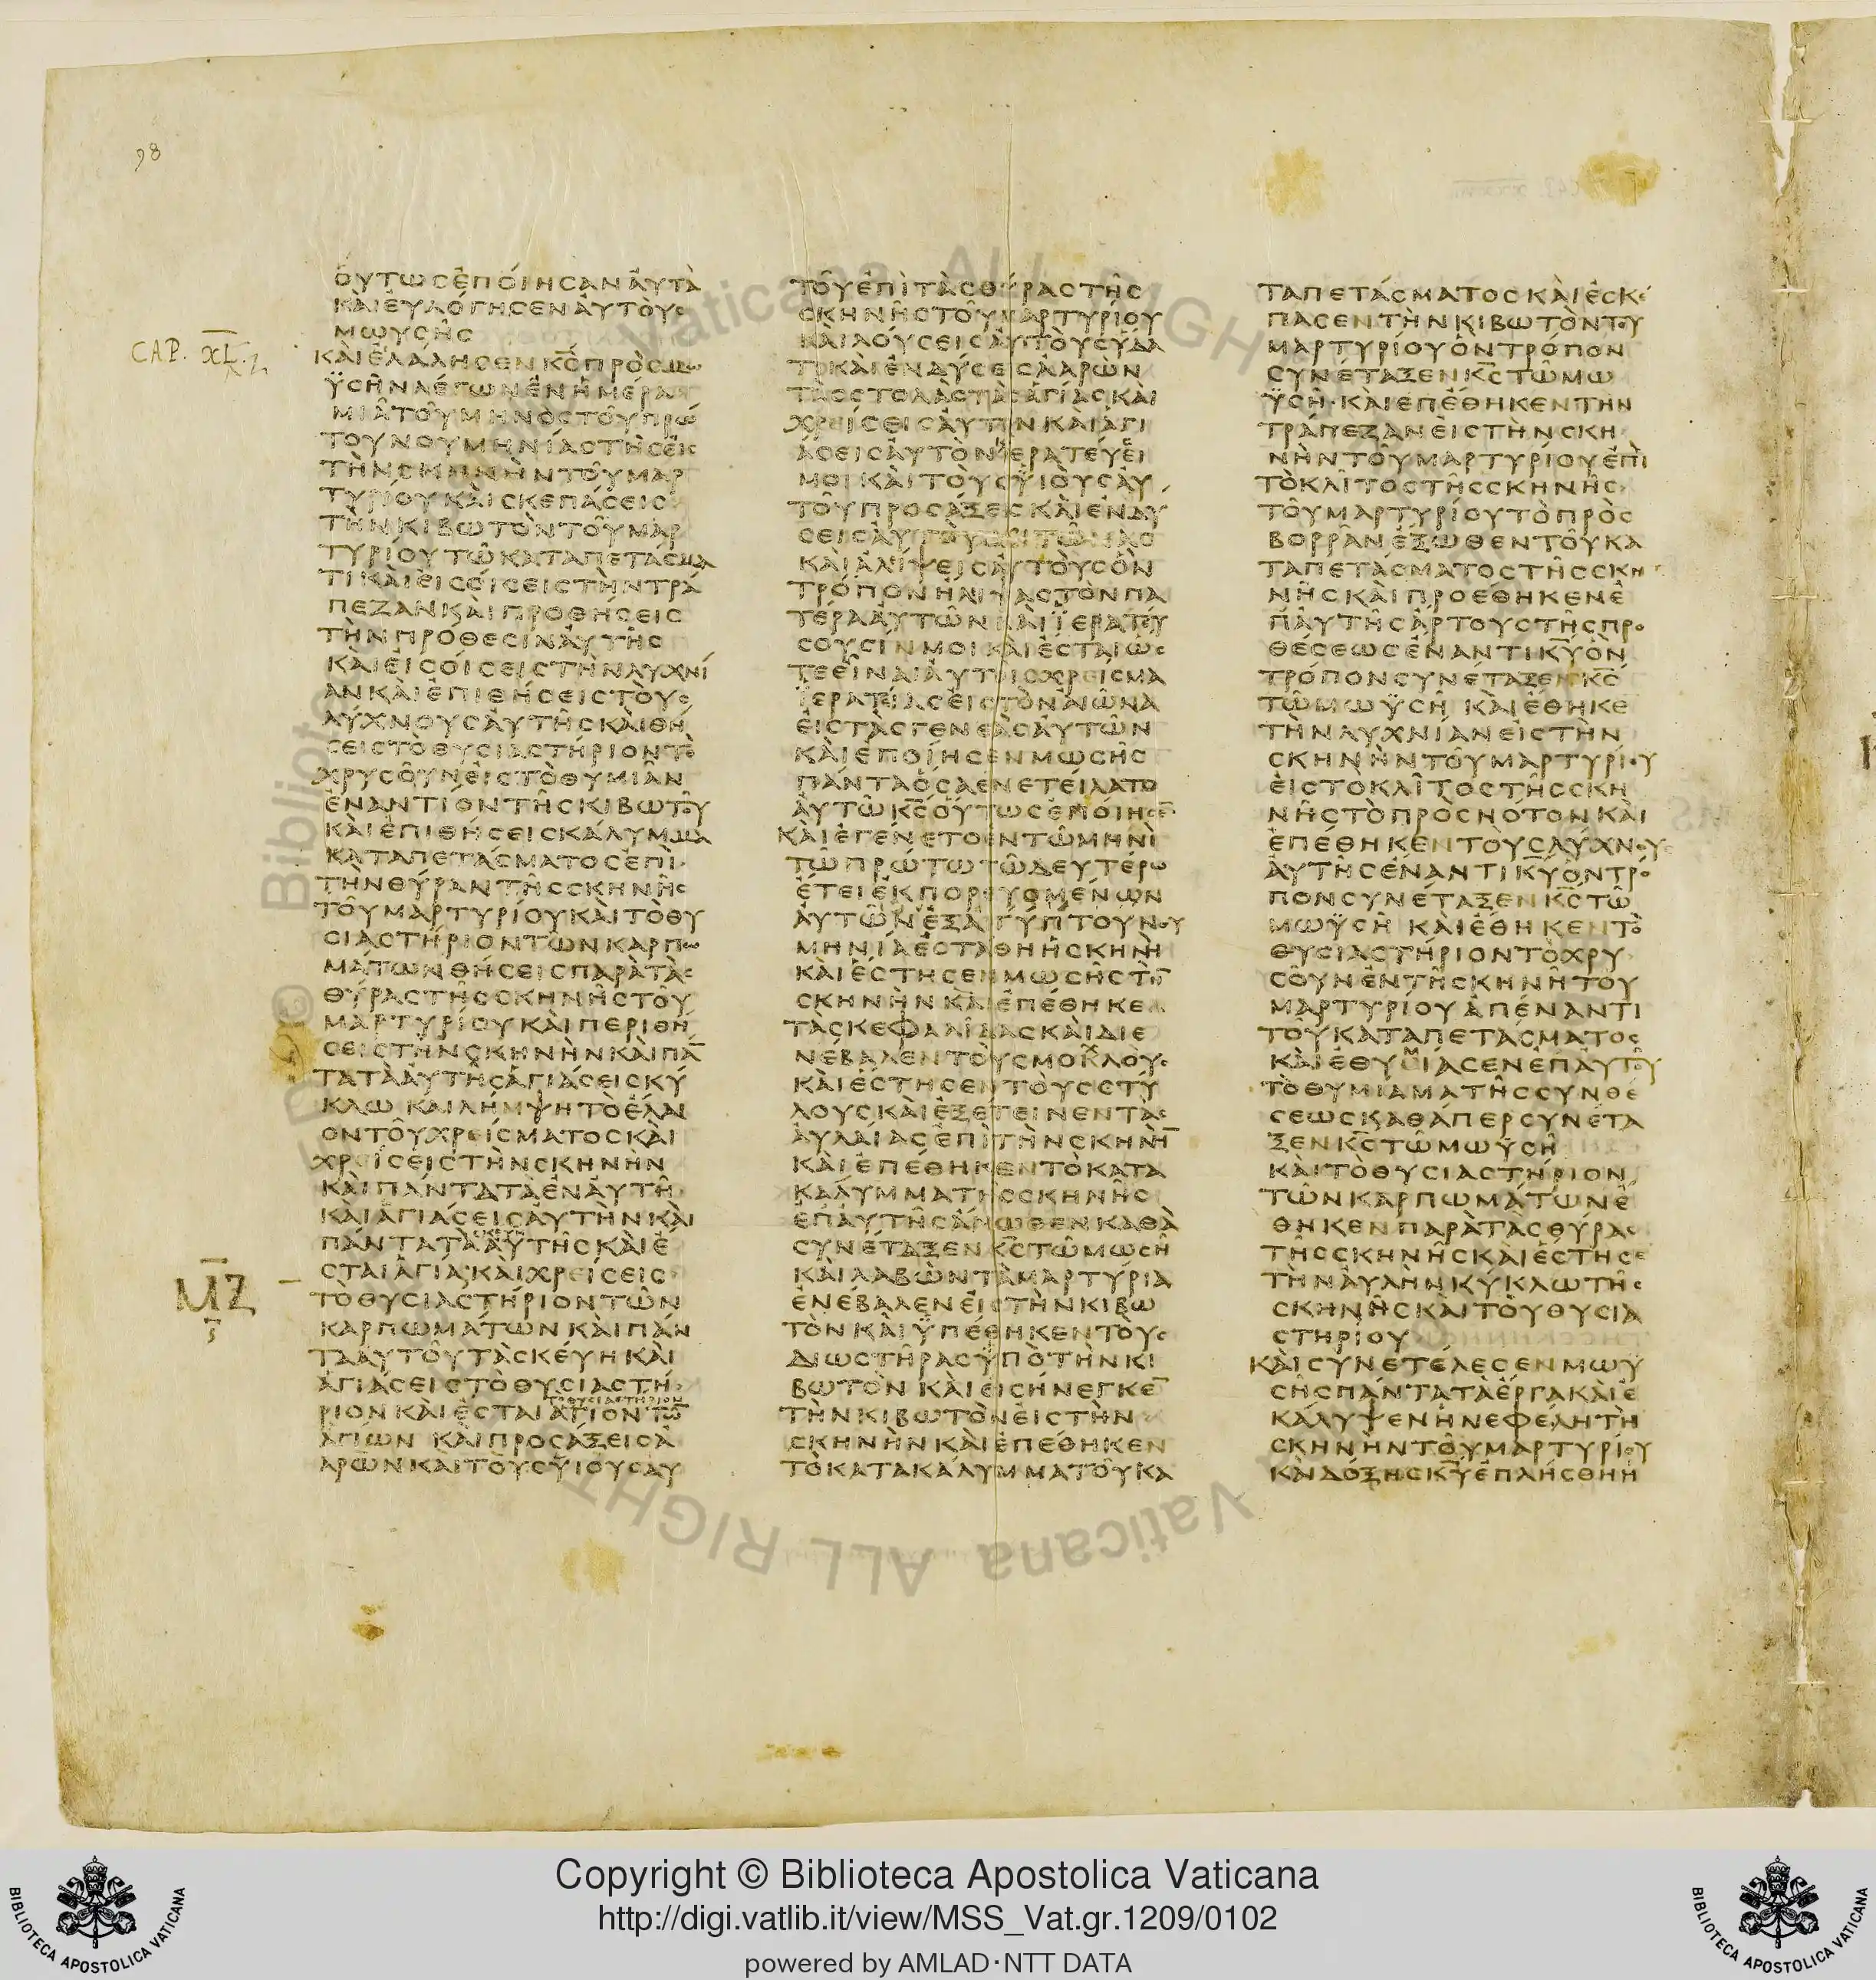 98
CAP. XL.
ΟΥΤΩϹΕΠΟΙΗϹΑΝΑΥΤΑ
ΚΑΙΕΥΛΟΓΗϹΕΝΑΥΤΟΥϹ
ΜΩΥϹΗϹ
ΚΑΙΕΛΑΛΗϹΕΝΚ̅Ϲ̅ΠΡΟϹΜΩ
ΫϹΗΝΛΕΓΩΝΕΝΗΜΕΡΑ
ΜΙΑΤΟΥΜΗΝΟϹΤΟΥΠΡΩ
ΤΟΥΝΟΥΜΗΝΙΑϹΤΗϹΕΙϹ
ΤΗΝϹΚΗΝΗΝΤΟΥΜΑΡ
ΤΥΡΙΟΥΚΑΙϹΚΕΠΑϹΕΙϹ
ΤΗΝΚΙΒΩΤΟΝΤΟΥΜΑΡ
ΤΥΡΙΟΥΤΩΚΑΤΑΠΕΤΑϹΜΑ
ΤΙΚΑΙΕΙϹΟΙϹΕΙϹΤΗΝΤΡΑ
ΠΕΖΑΝΚΑΙΠΡΟΘΗϹΕΙϹ
ΤΗΝΠΡΟΘΕϹΙΝΑΥΤΗϹ
ΚΑΙΕΙϹΟΙϹΕΙϹΤΗΝΛΥΧΝΙ
ΑΝΚΑΙΕΠΙΘΗϹΕΙϹΤΟΥϹ
ΛΥΧΝΟΥϹΑΥΤΗϹΚΑΙΘΗ
ϹΕΙϹΤΟΘΥϹΙΑϹΤΗΡΙΟΝΤΟ
ΧΡΥϹΟΥΝΕΙϹΤΟΘΥΜΙΑΝ
ΕΝΑΝΤΙΟΝΤΗϹΚΙΒΩΤΟΥ
ΚΑΙΕΠΙΘΗϹΕΙϹΚΑΛΥΜΜΑ
ΚΑΤΑΠΕΤΑϹΜΑΤΟϹΕΠΙ
ΤΗΝΘΥΡΑΝΤΗϹϹΚΗΝΗϹ
ΤΟΥΜΑΡΤΥΡΙΟΥΚΑΙΤΟΘΥ
ϹΙΑϹΤΗΡΙΟΝΤΩΝΚΑΡΠΩ
ΜΑΤΩΝΘΗϹΕΙϹΠΑΡΑΤΑϹ
ΘΥΡΑϹΤΗϹϹΚΗΝΗϹΤΟΥ
ΜΑΡΤΥΡΙΟΥΚΑΙΠΕΡΙΘΗ
ϹΕΙϹΤΗΝϹΚΗΝΗΝΚΑΙΠΑ̅
ΤΑΤΑΑΥΤΗϹΑΓΙΑϹΕΙϹΚΥ
ΚΛΩ ΚΑΙΛΗΜΨΗΤΟΕΛΑΙ
ΟΝΤΟΥΧΡΕΙϹΜΑΤΟϹΚΑΙ
ΧΡΕΙϹΕΙϹΤΗΝϹΚΗΝΗΝ
ΚΑΙΠΑΝΤΑΤΑΕΝΑΥΤΗ
ΚΑΙΑΓΙΑϹΕΙϹΑΥΤΗΝΚΑΙ
ΠΑΝΤΑΤΑΑΥΤΗϹΚΑΙΕ
ϹΤΑΙΑΓΙΑΚΑΙΧΡΕΙϹΕΙϹ
ΤΟΘΥϹΙΑϹΤΗΡΙΟΝΤΩΝ
ΚΑΡΠΩΜΑΤΩΝΚΑΙΠΑΝ
ΤΑΑΥΤΟΥΤΑϹΚΕΥΗΚΑΙ
ΑΓΙΑϹΕΙϹΤΟΘΥϹΙΑϹΤΗ
ΡΙΟΝΚΑΙΕϹΤΑΙΑΓΙΟΝΤΩ̅
ΑΓΙΩΝ ΚΑΙΠΡΟϹΑΞΕΙϹΑ
ΑΡΩΝΚΑΙΤΟΥϹΥΙΟΥϹΑΥ
Μ̅Ζ̅
ΤΟΥΕΠΙΤΑϹΘΥΡΑϹΤΗϹ
ϹΚΗΝΗϹΤΟΥΜΑΡΤΥΡΙΟΥ
ΚΑΙΛΟΥϹΕΙϹΑΥΤΟΥϹΥΔΑ
ΤΙΚΑΙΕΝΔΥϹΕΙϹΑΑΡΩΝ
ΤΑϹϹΤΟΛΑϹΤΑϹΑΓΙΑϹΚΑΙ
ΧΡΕΙϹΕΙϹΑΥΤΟΝΚΑΙΑΓΙ
ΑϹΕΙϹΑΥΤΟΝΙΕΡΑΤΕΥΕΙ
ΜΟΙΚΑΙΤΟΥϹΥΙΟΥϹΑΥ
ΤΟΥΠΡΟϹΑΞΕΙϹΚΑΙΕΝΔΥ
ϹΕΙϹΑΥΤΟΥϹΧΙΤΩΝΑϹ
ΚΑΙΑΛΙΨΕΙϹΑΥΤΟΥϹΟΝ
ΤΡΟΠΟΝΗΛΙΨΑϹΤΟΝΠΑ
ΤΕΡΑΑΥΤΩΝΚΑΙΪΕΡΑΤΕΥ
ϹΟΥϹΙΝΜΟΙΚΑΙΕϹΤΑΙΩϹ
ΤΕΕΙΝΑΙΑΥΤΟΙϹΧΡΕΙϹΜΑ
ΪΕΡΑΤΕΙΑϹΕΙϹΤΟΝΑΙΩΝΑ
ΕΙϹΤΑϹΓΕΝΕΑϹΑΥΤΩΝ
ΚΑΙΕΠΟΙΗϹΕΝΜΩϹΗϹ
ΠΑΝΤΑΟϹΑΕΝΕΤΕΙΛΑΤΟ
ΑΥΤΩΚ̅Ϲ̅ΟΥΤΩϹΕΠΟΙΗϹΕ̅
ΚΑΙΕΓΕΝΕΤΟΕΝΤΩΜΗΝΙ
ΤΩΠΡΩΤΩΤΩΔΕΥΤΕΡΩ
ΕΤΕΙΕΚΠΟΡΕΥΟΜΕΝΩΝ
ΑΥΤΩΝΕΞΑΙΓΥΠΤΟΥΝΟΥ
ΜΗΝΙΑΕϹΤΑΘΗΗϹΚΗΝΗ
ΚΑΙΕϹΤΗϹΕΝΜΩϹΗϹΤΗ̅
ϹΚΗΝΗΝΚΑΙΕΠΕΘΗΚΕ
ΤΑϹΚΕΦΑΛΙΔΑϹΚΑΙΔΙΕ
ΝΕΒΑΛΕΝΤΟΥϹΜΟΚΛΟΥϹ
ΚΑΙΕϹΤΗϹΕΝΤΟΥϹϹΤΥ
ΛΟΥϹΚΑΙΕΞΕΤΕΙΝΕΝΤΑϹ
ΑΥΛΑΙΑϹΕΠΙΤΗΝϹΚΗΝΗ̅
ΚΑΙΕΠΕΘΗΚΕΝΤΟΚΑΤΑ
ΚΑΛΥΜΜΑΤΗϹϹΚΗΝΗϹ
ΕΠΑΥΤΗϹΑΝΩΘΕΝΚΑΘΑ
ϹΥΝΕΤΑΞΕΝΚ̅Ϲ̅ΤΩΜΩϹΗ
ΚΑΙΛΑΒΩΝΤΑΜΑΡΤΥΡΙΑ
ΕΝΕΒΑΛΕΝΕΙϹΤΗΝΚΙΒΩ
ΤΟΝΚΑΙΫΠΕΘΗΚΕΝΤΟΥϹ
ΔΙΩϹΤΗΡΑϹΫΠΟΤΗΝΚΙ
ΒΩΤΟΝ ΚΑΙΕΙϹΗΝΕΓΚΕ̅
ΤΗΝΚΙΒΩΤΟΝΕΙϹΤΗΝ
ϹΚΗΝΗΝΚΑΙΕΠΕΘΗΚΕΝ
ΤΟΚΑΤΑΚΑΛΥΜΜΑΤΟΥΚΑ
ΤΑΠΕΤΑϹΜΑΤΟϹΚΑΙΕϹΚΕ
ΠΑϹΕΝΤΗΝΚΙΒΩΤΟΝΤΟΥ
ΜΑΡΤΥΡΙΟΥΟΝΤΡΟΠΟΝ
ϹΥΝΕΤΑΞΕΝΚ̅Ϲ̅ΤΩΜΩ
ΫϹΗ ΚΑΙΕΠΕΘΗΚΕΝΤΗΝ
ΤΡΑΠΕΖΑΝΕΙϹΤΗΝϹΚΗ
ΝΗΝΤΟΥΜΑΡΤΥΡΙΟΥΕΠΙ
ΤΟΚΛΙΤΟϹΤΗϹϹΚΗΝΗϹ
ΤΟΥΜΑΡΤΥΡΙΟΥΤΟΠΡΟϹ
ΒΟΡΡΑΝΕΞΩΘΕΝΤΟΥΚΑ
ΤΑΠΕΤΑϹΜΑΤΟϹΤΗϹϹΚΗ
ΝΗϹΚΑΙΠΡΟΕΘΗΚΕΝΕ
ΠΑΥΤΗϹΑΡΤΟΥϹΤΗϹΠΡΟ
ΘΕϹΕΩϹΕΝΑΝΤΙΚ̅Υ̅ΟΝ
ΤΡΟΠΟΝϹΥΝΕΤΑΞΕΝΚ̅Ϲ̅
ΤΩΜΩΫϹΗ ΚΑΙΕΘΗΚΕ
ΤΗΝΛΥΧΝΙΑΝΕΙϹΤΗΝ
ϹΚΗΝΗΝΤΟΥΜΑΡΤΥΡΙΟΥ
ΕΙϹΤΟΚΛΙΤΟϹΤΗϹϹΚΗ
ΝΗϹΤΟΠΡΟϹΝΟΤΟΝΚΑΙ
ΕΠΕΘΗΚΕΝΤΟΥϹΛΥΧΝΟΥϹ
ΑΥΤΗϹΕΝΑΝΤΙΚ̅Υ̅ΟΝΤΡΟ
ΠΟΝϹΥΝΕΤΑΞΕΝΚ̅Ϲ̅ΤΩ
ΜΩΫϹΗ ΚΑΙΕΘΗΚΕΝΤΟ
ΘΥϹΙΑϹΤΗΡΙΟΝΤΟΧΡΥ
ϹΟΥΝΕΝΤΗϹΚΗΝΗΤΟΥ
ΜΑΡΤΥΡΙΟΥΑΠΕΝΑΝΤΙ
ΤΟΥΚΑΤΑΠΕΤΑϹΜΑΤΟϹ
ΚΑΙΕΘΥΜΙΑϹΕΝΕΠΑΥΤΟΥ
ΤΟΘΥΜΙΑΜΑΤΗϹϹΥΝΘΕ
ϹΕΩϹΚΑΘΑΠΕΡϹΥΝΕΤΑ
ΞΕΝΚ̅Ϲ̅ΤΩΜΩΫϹΗ
ΚΑΙΤΟΘΥϹΙΑϹΤΗΡΙΟΝ
ΤΩΝΚΑΡΠΩΜΑΤΩΝΕ
ΘΗΚΕΝΠΑΡΑΤΑϹΘΥΡΑϹ
ΤΗϹϹΚΗΝΗϹΚΑΙΕϹΤΗϹΕ
ΤΗΝΑΥΛΗΝΚΥΚΛΩΤΗϹ
ϹΚΗΝΗϹΚΑΙΤΟΥΘΥϹΙΑ
ϹΤΗΡΙΟΥ
ΚΑΙϹΥΝΕΤΕΛΕϹΕΝΜΩΫ
ϹΗϹΠΑΝΤΑΤΑΕΡΓΑΚΑΙΕ
ΚΑΛΥΨΕΝΗΝΕΦΕΛΗΤΗ
ϹΚΗΝΗΝΤΟΥΜΑΡΤΥΡΙΟΥ
ΚΑΙΔΟΞΗϹΚ̅Υ̅ΕΠΛΗϹΘΗΗ
Copyright © Biblioteca Apostolica Vaticana
http://digi.vatlib.it/view/MSS_Vat.gr.1209/0102
powered by AMLAD·NTT DATA
BIBLIOTECA APOSTOLICA VATICANA
BIBLIOTECA APOSTOLICA VATICANA